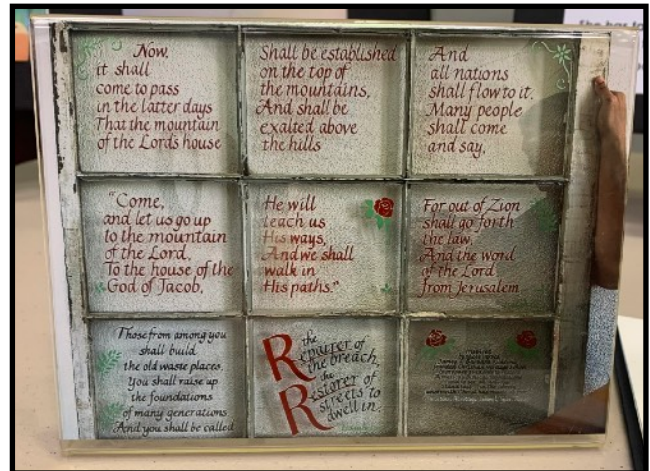 Now,
it shall
come to pass
in the latter days
That the mountain
of the Lord's house
Shall be established
on the top of
the mountains,
And shall be
exalted above
the hills
And
all nations
shall flow to it.
Many people
shall come
and say,
"Come,
and let us go up
to the mountain
of the Lord,
To the house of the
God of Jacob,
He will
teach us
His ways,
And we shall
walk in
His paths."
For out of Zion
shall go forth
the law,
And the word
of the Lord
from Jerusalem
Those from among you
shall build
the old waste places,
You shall raise up
the foundations
of many generations
And you shall be called
the
Repairer of
the breach,
the
Restorer of
streets to
dwell in.